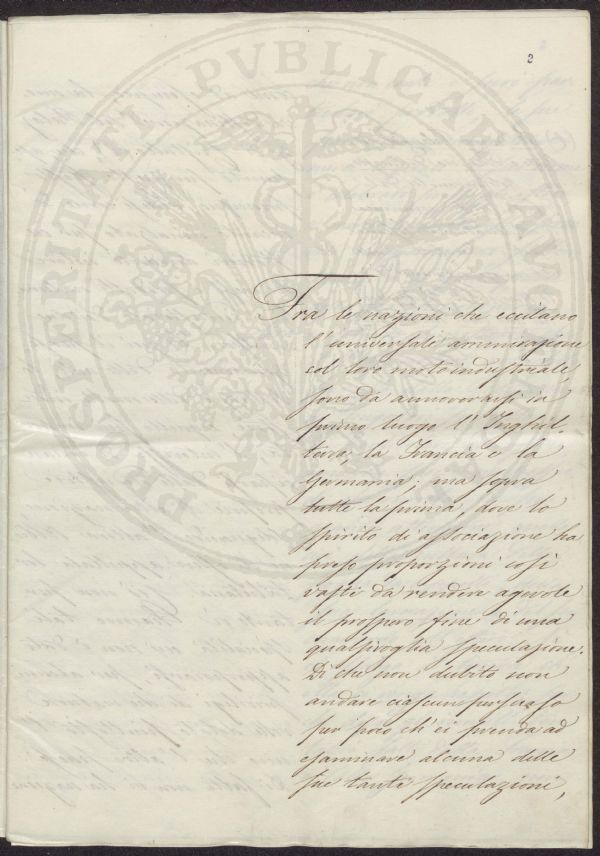 2
PROSPERITATI PVBLICAE AVGENDAE
Fra le nazioni che eccitano
l'universale ammirazione
col loro moto industriale,
sono da annoverarsi in
primo luogo l'Inghil-
terra, la Francia e la
Germania; ma sopra
tutte la prima, dove lo
spirito di associazione ha
preso proporzioni così
vaste da rendere agevole
il prospero fine di una
qualsivoglia speculazione.
Di che non dubito non
andare ciascun persuaso
per poco ch'ei prenda ad
esaminare alcuna delle
sue tante speculazioni,